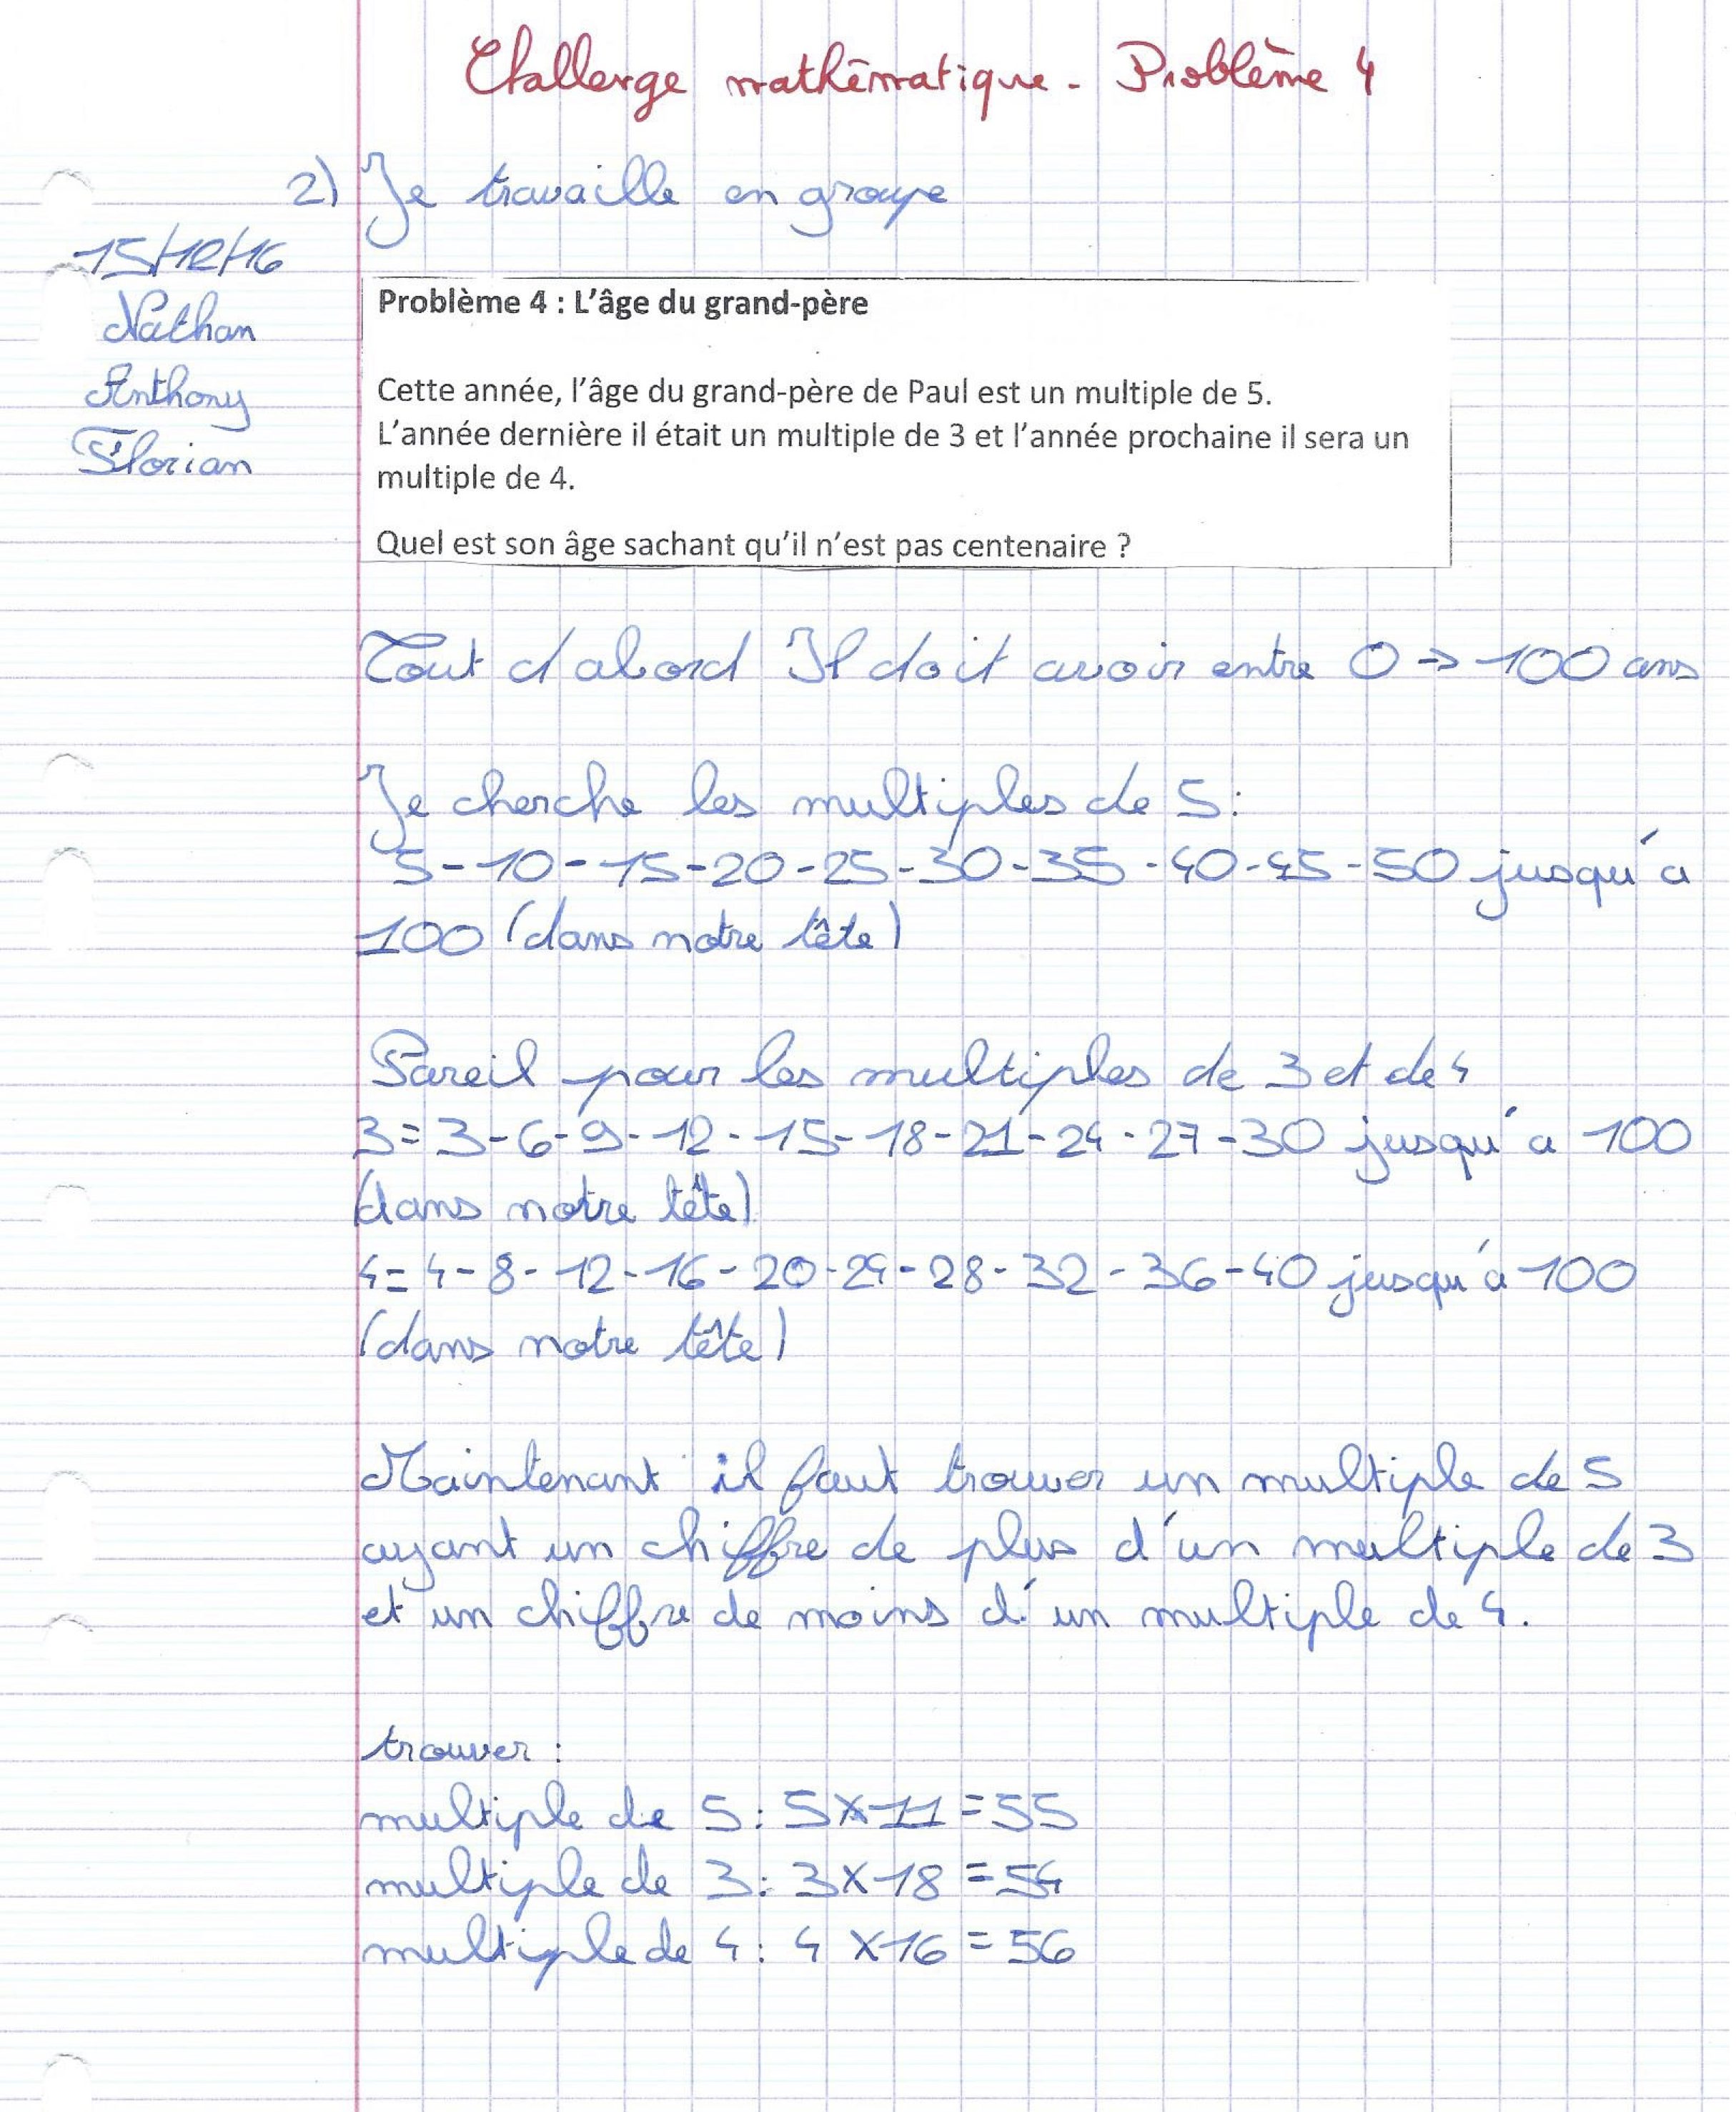 Challenge mathématique - Problème 4
2) Je travaille en groupe
15/12/16
Nathan
Anthony
Florian
Problème 4 : L'âge du grand-père
Cette année, l'âge du grand-père de Paul est un multiple de 5.
L'année dernière il était un multiple de 3 et l'année prochaine il sera un
multiple de 4.
Quel est son âge sachant qu'il n'est pas centenaire ?
Tout d'abord Il doit avoir entre 0 → 100 ans
Je cherche les multiples de 5:
5-10-15-20-25-30-35-40-45-50 jusqu'a
100 (dans notre tête)
Pareil pour les multiples de 3 et de 4
3=3-6-9-12-15-18-21-24-27-30 jusqu'a 100
(dans notre tête)
4=4-8-12-16-20-24-28-32-36-40 jusqu'a 100
(dans notre tête)
Maintenant il faut trouver un multiple de 5
ayant un chiffre de plus d'un multiple de 3
et un chiffre de moins d'un multiple de 4.
trouver :
multiple de 5: 5x11=55
multiple de 3: 3x18=54
multiple de 4: 4x16=56